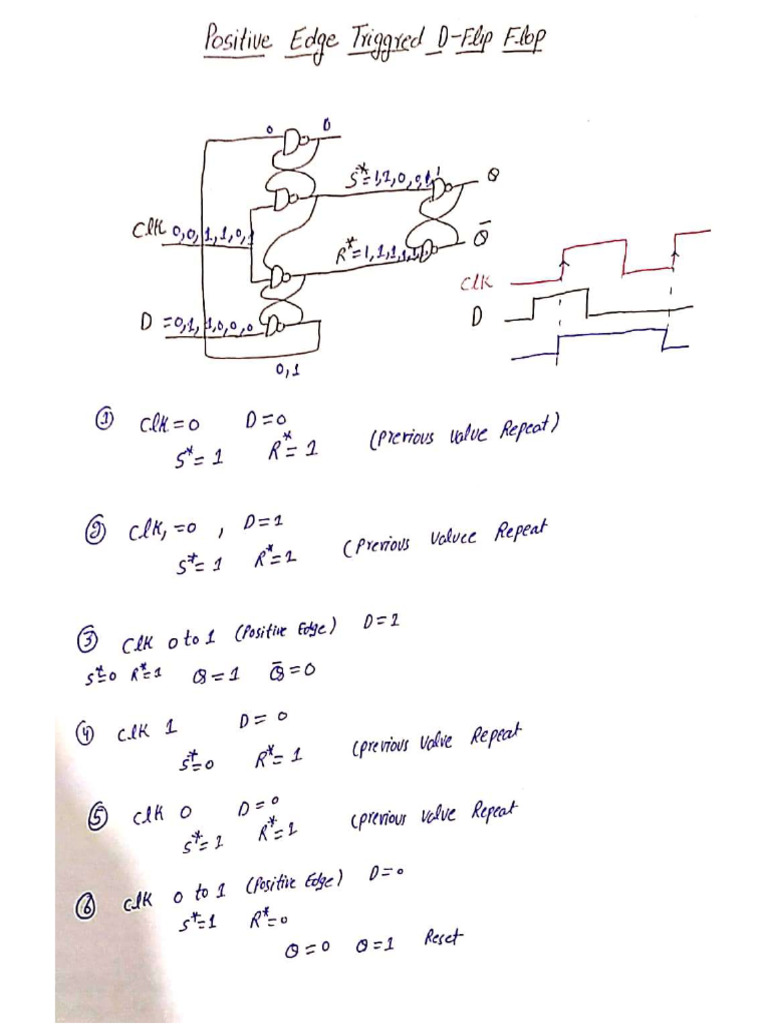 Positive Edge Triggred D-Flip Flop
0 0
S*=1,1,0,0,1,1 Q
Clk 0,0,1,1,0,1
R*=1,1,1,1,1 Q̄
Clk
D =0,1,1,0,0,0
D
0,1
① Clk=0 D=0
S*=1 R*=1 (Previous Value Repeat)
② Clk,=0 , D=1
S*=1 R*=1 (Previous Valuee Repeat
③ Clk 0 to 1 (Positive Edge) D=1
S*=0 R*=1 Q=1 Q̄=0
④ Clk 1 D=0
S*=0 R*=1 (previous Value Repeat
⑤ Clk 0 D=0
S*=1 R*=1 (previous Value Repeat
⑥ Clk 0 to 1 (Positive Edge) D=0
S*=1 R*=0
Q=0 Q=1 Reset